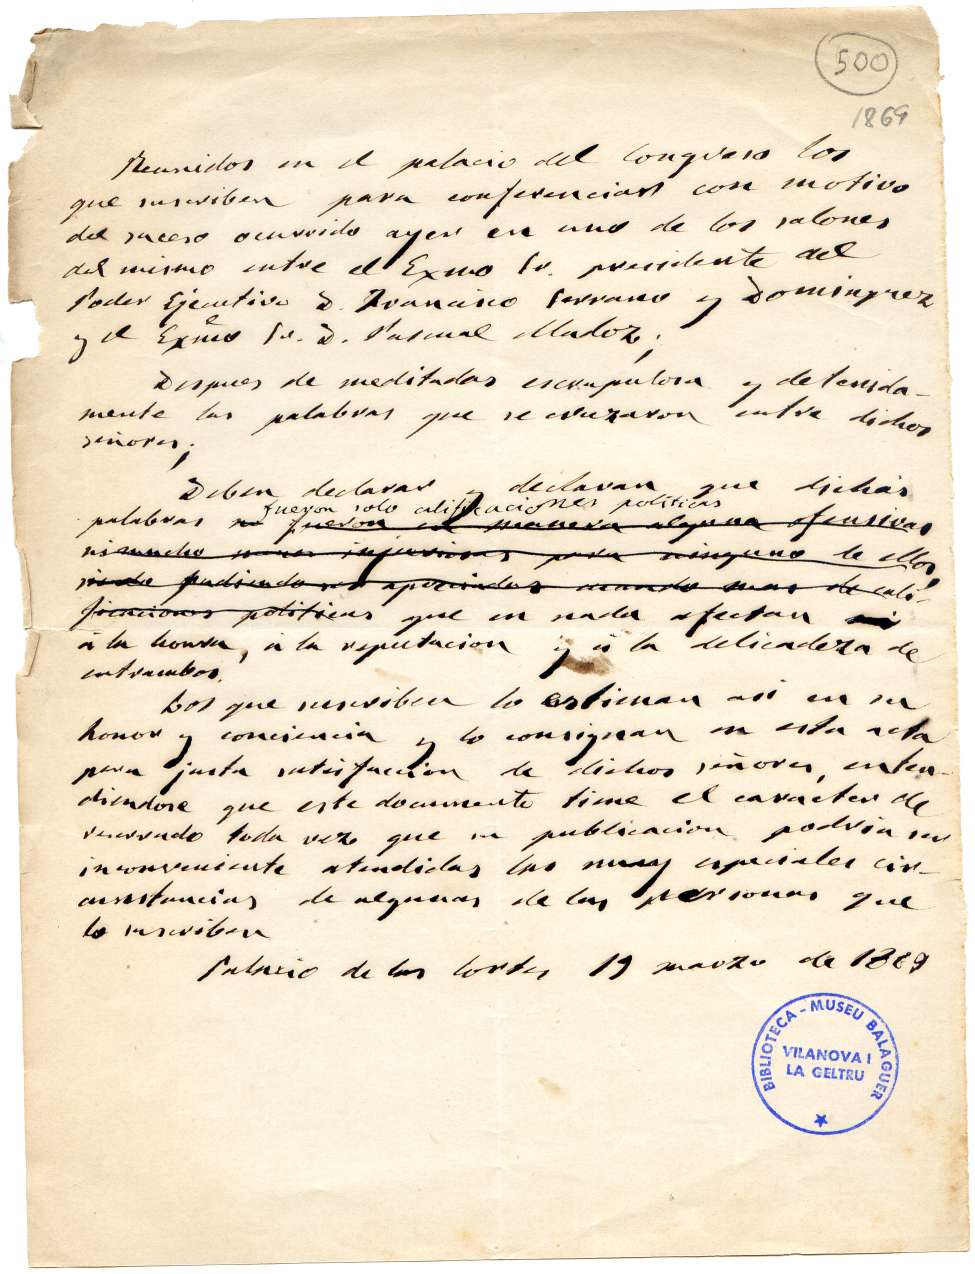 500
1869
Reunidos en el palacio del Congreso los
que suscriben para conferenciar con motivo
del suceso ocurrido ayer en uno de los salones
del mismo entre el Exmo Sr. presidente del
Poder Ejecutivo D. Francisco Serrano y Dominguez
y el Exmo Sr. D. Pascual Madoz;
Despues de meditadas escrupulosa y detenida-
mente las palabras que se cruzaron entre dichos
señores;
Deben declarar y declaran que dichas
fueron solo calificaciones políticas
palabras no fueron en manera alguna ofensivas
ni mucho menos injuriosas para ninguno de ellos,
no pudiendo ser apreciadas cuando mas de cali-
ficaciones politicas que en nada afectan ni
á la honra, á la reputacion y á la delicadeza de
entrambos.
Los que suscriben lo estiman asi en su
honor y conciencia y lo consignan en esta acta
para justa satisfaccion de dichos señores, enten-
diendose que este documento tiene el caracter de
reservado toda vez que su publicacion podria ser
inconveniente atendidas las muy especiales cir-
cunstancias de algunas de las personas que
lo suscriben
Palacio de las Cortes 19 marzo de 1869
BIBLIOTECA - MUSEU BALAGUER
VILANOVA I
LA GELTRU